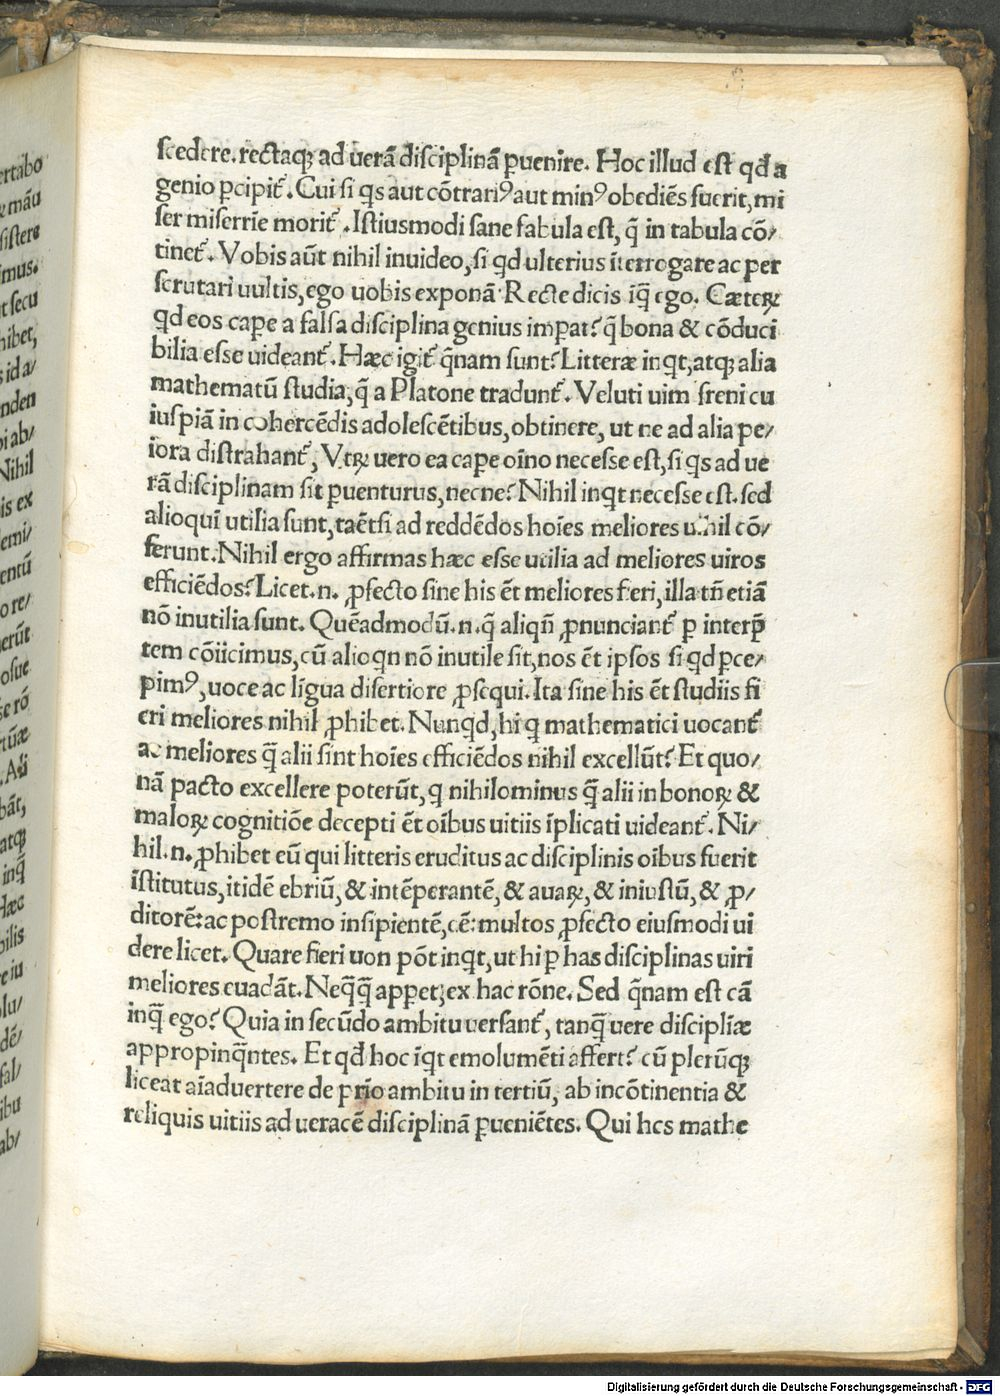 scedere. rectaqꝫ ad uerã disciplinã ꝑuenire. Hoc illud est qđ a
genio ꝑcipit᷑. Cui si qs aut cõtrariꝰ aut minꝰ obediẽs fuerit, mi
ser miserrie morit᷑. Istiusmodi sane fabula est, q̃ in tabula cõ/
tinet᷑. Vobis aũt nihil inuideo, si qd ulterius ĩterrogare ac per
scrutari uultis, ego uobis exponã. Recte dicis iq̃ ego. Cæteꝝ
qđ eos caꝑe a falsa disciplina genius imꝑat? q̃ bona & cõduci
bilia esse uideant᷑. Hæc igit᷑ q̃nam sunt? Litteræ inqt, atqꝫ alia
mathematũ studia, q̃ a Platone tradunt᷑. Veluti uim freni cu
iuspiã in cohercẽdis adolescẽtibus, obtinere, ut ne ad alia pe/
iora distrahant᷑, Vtꝝ uero ea caꝑe oĩno necesse est, si qs ad ue
rã disciplinam sit ꝑuenturus, necne? Nihil inqt necesse est. sed
alioqui utilia sunt, taẽtsi ad reddẽdos hoĩes meliores nihil cõ/
ferunt. Nihil ergo affirmas hæc esse utilia ad meliores uiros
efficiẽdos? Licet .n. ꝓfecto sine his ẽt meliores fieri, illa tñ etiã
nõ inutilia sunt. Quẽadmodũ .n. q̃ aliqñ ꝓnunciant᷑ ꝑ interp̃
tem cõiicimus, cũ alioqn nõ inutile sit, nos ẽt ipsos si qd ꝑce/
pimꝰ, uoce ac lĩgua disertiore ꝓsequi. Ita sine his ẽt studiis fi
eri meliores nihil ꝓhibet. Nunqd, hi q mathematici uocant᷑
ac meliores q̃ alii sint hoĩes efficiẽdos nihil excellũt? Et quo/
nã pacto excellere poterũt, q nihilominus q̃ alii in bonoꝝ &
maloꝝ cognitiõe decepti ẽt oĩbus uitiis ĩplicati uideant᷑. Ni/
hil .n. ꝓhibet eũ qui litteris eruditus ac disciplinis oĩbus fuerit
ĩstitutus, itidẽ ebriũ, & intẽperantẽ, & auaꝝ, & iniustũ, & ꝓ/
ditorẽ: ac postremo insipientẽ, cẽ: multos ꝓfecto eiusmodi ui
dere licet. Quare fieri uon põt inqt, ut hi ꝑ has disciplinas uiri
meliores euadãt. Neq̃q̃ apꝑet; ex hac rõne. Sed q̃nam est cã
inq̃ ego? Quia in secũdo ambitu uersant᷑, tanq̃ uere disciplĩæ
appropinq̃ntes. Et qđ hoc ĩqt emolumẽti affert? cũ plerũqꝫ
liceat aĩaduertere de prĩo ambitu in tertiũ, ab incõtinentia &
reliquis uitiis ad ueracẽ disciplinã ꝑueniẽtes. Qui hcs mathe
Digitalisierung gefördert durch die Deutsche Forschungsgemeinschaft - DFG